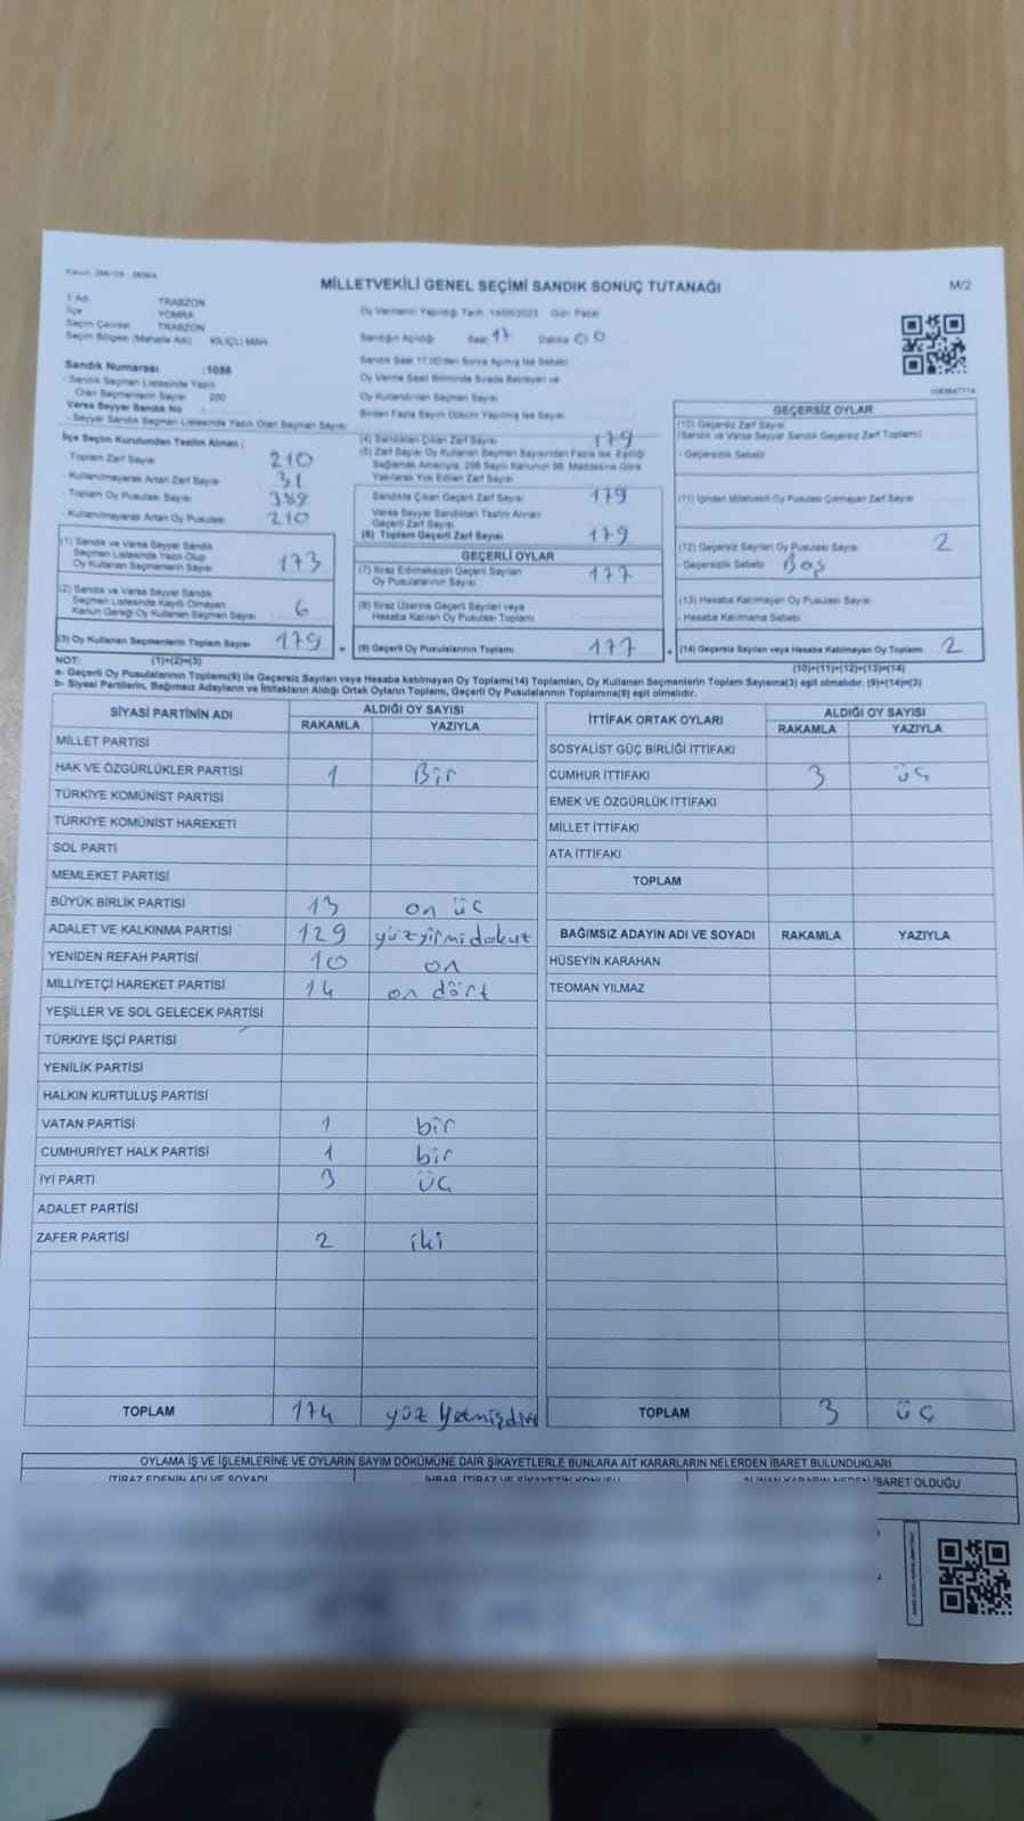 MİLLETVEKİLİ GENEL SEÇİMİ SANDIK SONUÇ TUTANAĞI
M/2
İli Adı TRABZON
İlçe YOMRA
Seçim Çevresi TRABZON
Seçim Bölgesi (Mahalle Adı) KILIÇLI MAH
Sandık Numarası :1086
Sandık Seçmen Listesinde Yazılı
Olan Seçmenlerin Sayısı 200
Varsa Seyyar Sandık No
Seyyar Sandık Seçmen Listesinde Yazılı Olan Seçmen Sayısı
Oy Vermenin Yapıldığı Tarih 14/05/2023 Gün Pazar
Sandığın Açıldığı Saat 17 Dakika 00
Sandık Saat 17.00'den Sonra Açılmış İse Sebebi
Oy Verme Saati Bitiminde Sırada Bekleyen ve
Oy Kullandırılan Seçmen Sayısı
Birden Fazla Sayım Döküm Yapılmış İse Sayısı
İlçe Seçim Kurulundan Teslim Alınan :
- Toplam Zarf Sayısı 210
- Kullanılmayarak Artan Zarf Sayısı 31
- Toplam Oy Pusulası Sayısı 389
- Kullanılmayarak Artan Oy Pusulası 210
(1) Sandık ve Varsa Seyyar Sandık
Seçmen Listesinde Yazılı Olup
Oy Kullanan Seçmenlerin Sayısı 173
(2) Sandık ve Varsa Seyyar Sandık
Seçmen Listesinde Kayıtlı Olmayan
Kanun Gereği Oy Kullanan Seçmen Sayısı 6
(3) Oy Kullanan Seçmenlerin Toplam Sayısı 179
(1)+(2)=(3)
(4) Sandıktan Çıkan Zarf Sayısı 179
(5) Zarf Sayısı Oy Kullanan Seçmen Sayısından Fazla ise, Eşitliği
Sağlamak Amacıyla, 298 Sayılı Kanunun 98. Maddesine Göre
Yakılarak Yok Edilen Zarf Sayısı
Sandıkta Çıkan Geçerli Zarf Sayısı 179
Varsa Seyyar Sandıktan Teslim Alınan
Geçerli Zarf Sayısı
(6) Toplam Geçerli Zarf Sayısı 179
GEÇERLİ OYLAR
(7) İtiraz Edilmeksizin Geçerli Sayılan
Oy Pusulalarının Sayısı 177
(8) İtiraz Üzerine Geçerli Sayılan veya
Hesaba Katılan Oy Pusulası Toplamı
(9) Geçerli Oy Pusulalarının Toplamı 177
GEÇERSİZ OYLAR
(10) Geçersiz Zarf Sayısı
(Sandık ve Varsa Seyyar Sandık Geçersiz Zarf Toplamı)
- Geçersizlik Sebebi
(11) İçinden Milletvekili Oy Pusulası Çıkmayan Zarf Sayısı
(12) Geçersiz Sayılan Oy Pusulası Sayısı 2
- Geçersizlik Sebebi Boş
(13) Hesaba Katılmayan Oy Pusulası Sayısı
- Hesaba Katılmama Sebebi
(14) Geçersiz Sayılan veya Hesaba Katılmayan Oy Toplamı 2
(10)+(11)+(12)+(13)=(14)
NOT:
a- Geçerli Oy Pusulalarının Toplamı(9) ile Geçersiz Sayılan veya Hesaba katılmayan Oy Toplamı(14) Toplamları, Oy Kullanan Seçmenlerin Toplam Sayısına(3) eşit olmalıdır. (9)+(14)=(3)
b- Siyasi Partilerin, Bağımsız Adayların ve İttifakların Aldığı Ortak Oyların Toplamı, Geçerli Oy Pusulalarının Toplamına(9) eşit olmalıdır.
SİYASİ PARTİNİN ADI ALDIĞI OY SAYISI
RAKAMLA YAZIYLA
MİLLET PARTİSİ
HAK VE ÖZGÜRLÜKLER PARTİSİ 1 Bir
TÜRKİYE KOMÜNİST PARTİSİ
TÜRKİYE KOMÜNİST HAREKETİ
SOL PARTİ
MEMLEKET PARTİSİ
BÜYÜK BİRLİK PARTİSİ 13 on üç
ADALET VE KALKINMA PARTİSİ 129 yüzyirmidokuz
YENİDEN REFAH PARTİSİ 10 on
MİLLİYETÇİ HAREKET PARTİSİ 14 on dört
YEŞİLLER VE SOL GELECEK PARTİSİ
TÜRKİYE İŞÇİ PARTİSİ
YENİLİK PARTİSİ
HALKIN KURTULUŞ PARTİSİ
VATAN PARTİSİ 1 bir
CUMHURİYET HALK PARTİSİ 1 bir
İYİ PARTİ 3 üç
ADALET PARTİSİ
ZAFER PARTİSİ 2 iki
TOPLAM 174 yüz yetmişdört
İTTİFAK ORTAK OYLARI ALDIĞI OY SAYISI
RAKAMLA YAZIYLA
SOSYALİST GÜÇ BİRLİĞİ İTTİFAKI
CUMHUR İTTİFAKI 3 üç
EMEK VE ÖZGÜRLÜK İTTİFAKI
MİLLET İTTİFAKI
ATA İTTİFAKI
TOPLAM
BAĞIMSIZ ADAYIN ADI VE SOYADI RAKAMLA YAZIYLA
HÜSEYİN KARAHAN
TEOMAN YILMAZ
TOPLAM 3 üç
OYLAMA İŞ VE İŞLEMLERİNE VE OYLARIN SAYIM DÖKÜMÜNE DAİR ŞİKAYETLERLE BUNLARA AİT KARARLARIN NELERDEN İBARET BULUNDUKLARI
İTİRAZ EDENİN ADI VE SOYADI
İHBAR, İTİRAZ VE ŞİKAYETİN KONUSU
ALINAN KARARIN NEDEN İBARET OLDUĞU